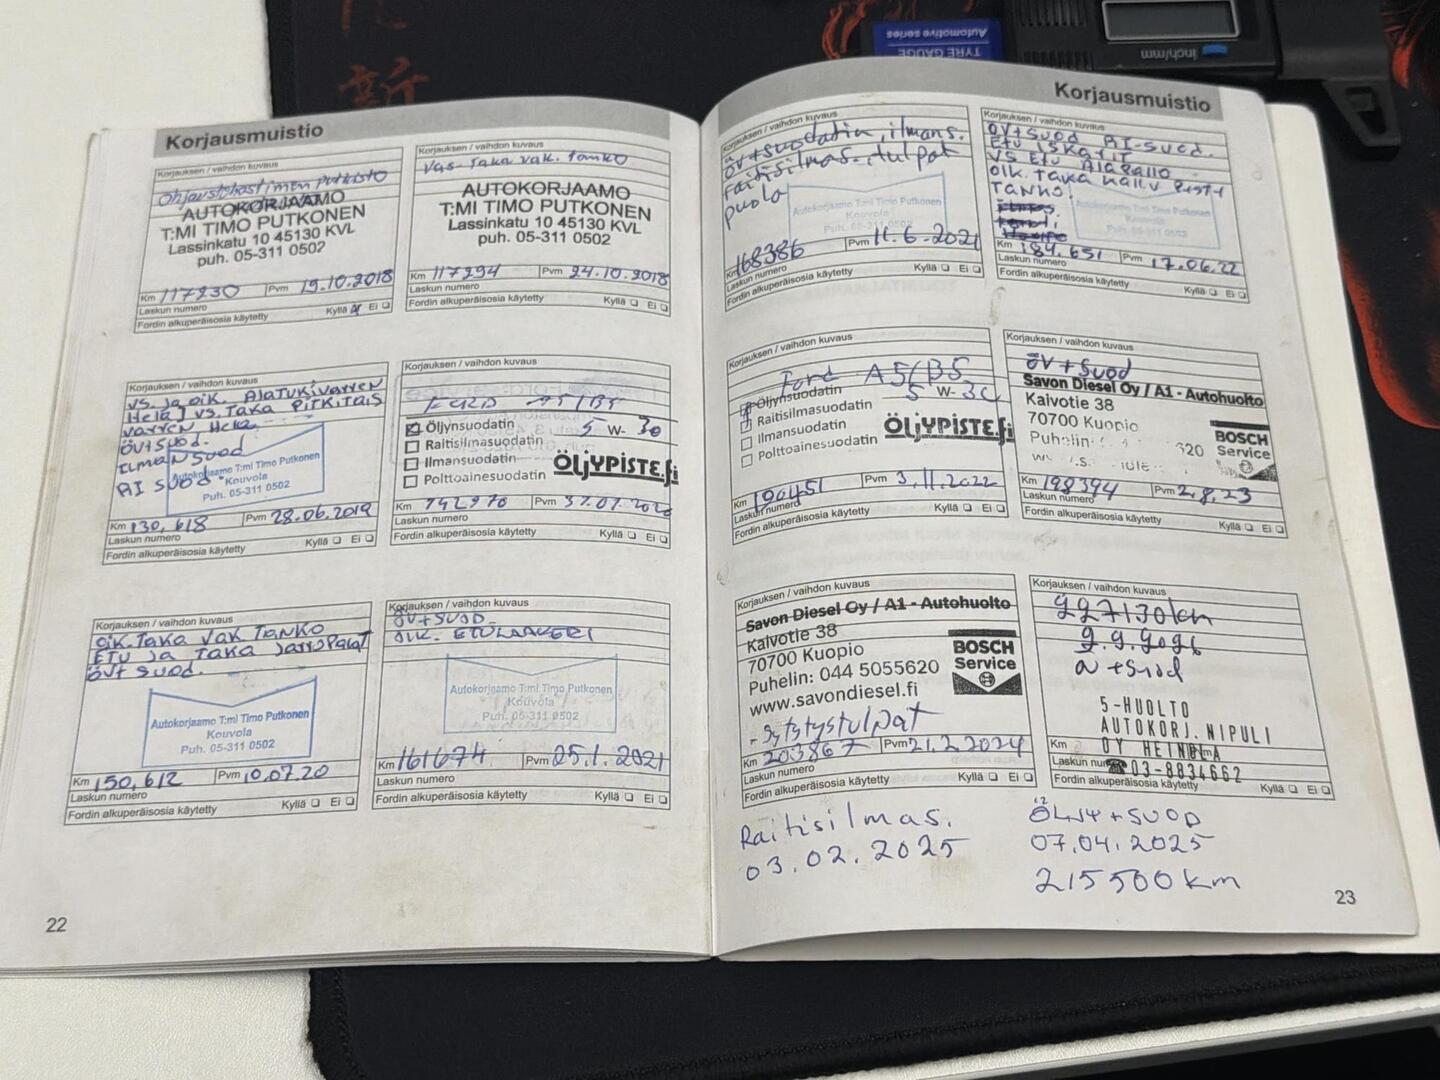 TYRE GAUGE
Automotive series
inch/mm
Korjausmuistio
Korjauksen / vaihdon kuvaus
Ohjaustehostimen putkisto
AUTOKORJAAMO
T:MI TIMO PUTKONEN
Lassinkatu 10 45130 KVL
puh. 05-311 0502
Km 117230 Pvm 19.10.2018
Laskun numero
Fordin alkuperäisosia käytetty Kyllä Ei
Korjauksen / vaihdon kuvaus
Vas-taka vak. tanko
AUTOKORJAAMO
T:MI TIMO PUTKONEN
Lassinkatu 10 45130 KVL
puh. 05-311 0502
Km 117294 Pvm 24.10.2018
Laskun numero
Fordin alkuperäisosia käytetty Kyllä Ei
Korjauksen / vaihdon kuvaus
VS. ja oik. ALATUKIVARREN
HELA VS. TAKA PITKITÄIS
VARREN HELA
ÖV+SUOD.
ILMANSUOD
AI SUOD.
Autokorjaamo T:mi Timo Putkonen
Kouvola
Puh. 05-311 0502
Km 130,618 Pvm 28.06.2019
Laskun numero
Fordin alkuperäisosia käytetty Kyllä Ei
Korjauksen / vaihdon kuvaus
FORD A5/B5
Öljynsuodatin 5 W- 30
Raitisilmasuodatin
Ilmansuodatin
Polttoainesuodatin
ÖLJYPISTE.fi
Km 142970 Pvm
Laskun numero
Fordin alkuperäisosia käytetty Kyllä Ei
Korjauksen / vaihdon kuvaus
OIK. TAKA VAK TANKO
ETU JA TAKA JARRUPALAT
ÖV+ SUOD.
Autokorjaamo T:mi Timo Putkonen
Kouvola
Puh. 05-311 0502
Km 150,612 Pvm 10.07.20
Laskun numero
Fordin alkuperäisosia käytetty Kyllä Ei
Korjauksen / vaihdon kuvaus
ÖV+SUOD.
OIK. ETULAAKERI
Autokorjaamo T:mi Timo Putkonen
Kouvola
Puh. 05-311 0502
Km 161674 Pvm 25.1.2021
Laskun numero
Fordin alkuperäisosia käytetty Kyllä Ei
22
Korjausmuistio
Korjauksen / vaihdon kuvaus
ÖV+suodatin, ilmans.
raitisilmas. tulpat
puola
Autokorjaamo T:mi Timo Putkonen
Kouvola
Puh. 05-311 0502
Km 168386 Pvm 11.6.2021
Laskun numero
Fordin alkuperäisosia käytetty Kyllä Ei
Korjauksen / vaihdon kuvaus
ÖV+SUOD AI-SUOD.
ETU ISKARIT
VS ETU ALAPALLO
OIK. TAKA KALLV PIST
TANKO
Autokorjaamo T:mi Timo Putkonen
Kouvola
Puh. 05-311 0502
Km 184,651 Pvm 17.06.22
Laskun numero
Fordin alkuperäisosia käytetty Kyllä Ei
Korjauksen / vaihdon kuvaus
Ford A5/B5
Öljynsuodatin 5 W-30
Raitisilmasuodatin
Ilmansuodatin
Polttoainesuodatin
ÖLJYPISTE.fi
Km 190451 Pvm 3.11.2022
Laskun numero
Fordin alkuperäisosia käytetty Kyllä Ei
Korjauksen / vaihdon kuvaus
ÖV+Suod
Savon Diesel Oy / A1 - Autohuolto
Kaivotie 38
70700 Kuopio
Puhelin: 620
BOSCH
Service
Km 198394 Pvm 2.8.23
Laskun numero
Fordin alkuperäisosia käytetty Kyllä Ei
Korjauksen / vaihdon kuvaus
Savon Diesel Oy / A1 - Autohuolto
Kaivotie 38
70700 Kuopio
Puhelin: 044 5055620
www.savondiesel.fi
BOSCH
Service
- Sytytystulpat
Km 203867 Pvm 21.2.2024
Laskun numero
Fordin alkuperäisosia käytetty Kyllä Ei
Korjauksen / vaihdon kuvaus
227130km
ö +suod
5-HUOLTO
AUTOKORJ. NIPULI
OY HEINOLA
☎03-8834662
Km
Laskun numero
Fordin alkuperäisosia käytetty Kyllä Ei
Raitisilmas.
03.02.2025
ÖLJY+SUOD
07.04.2025
215500km
23